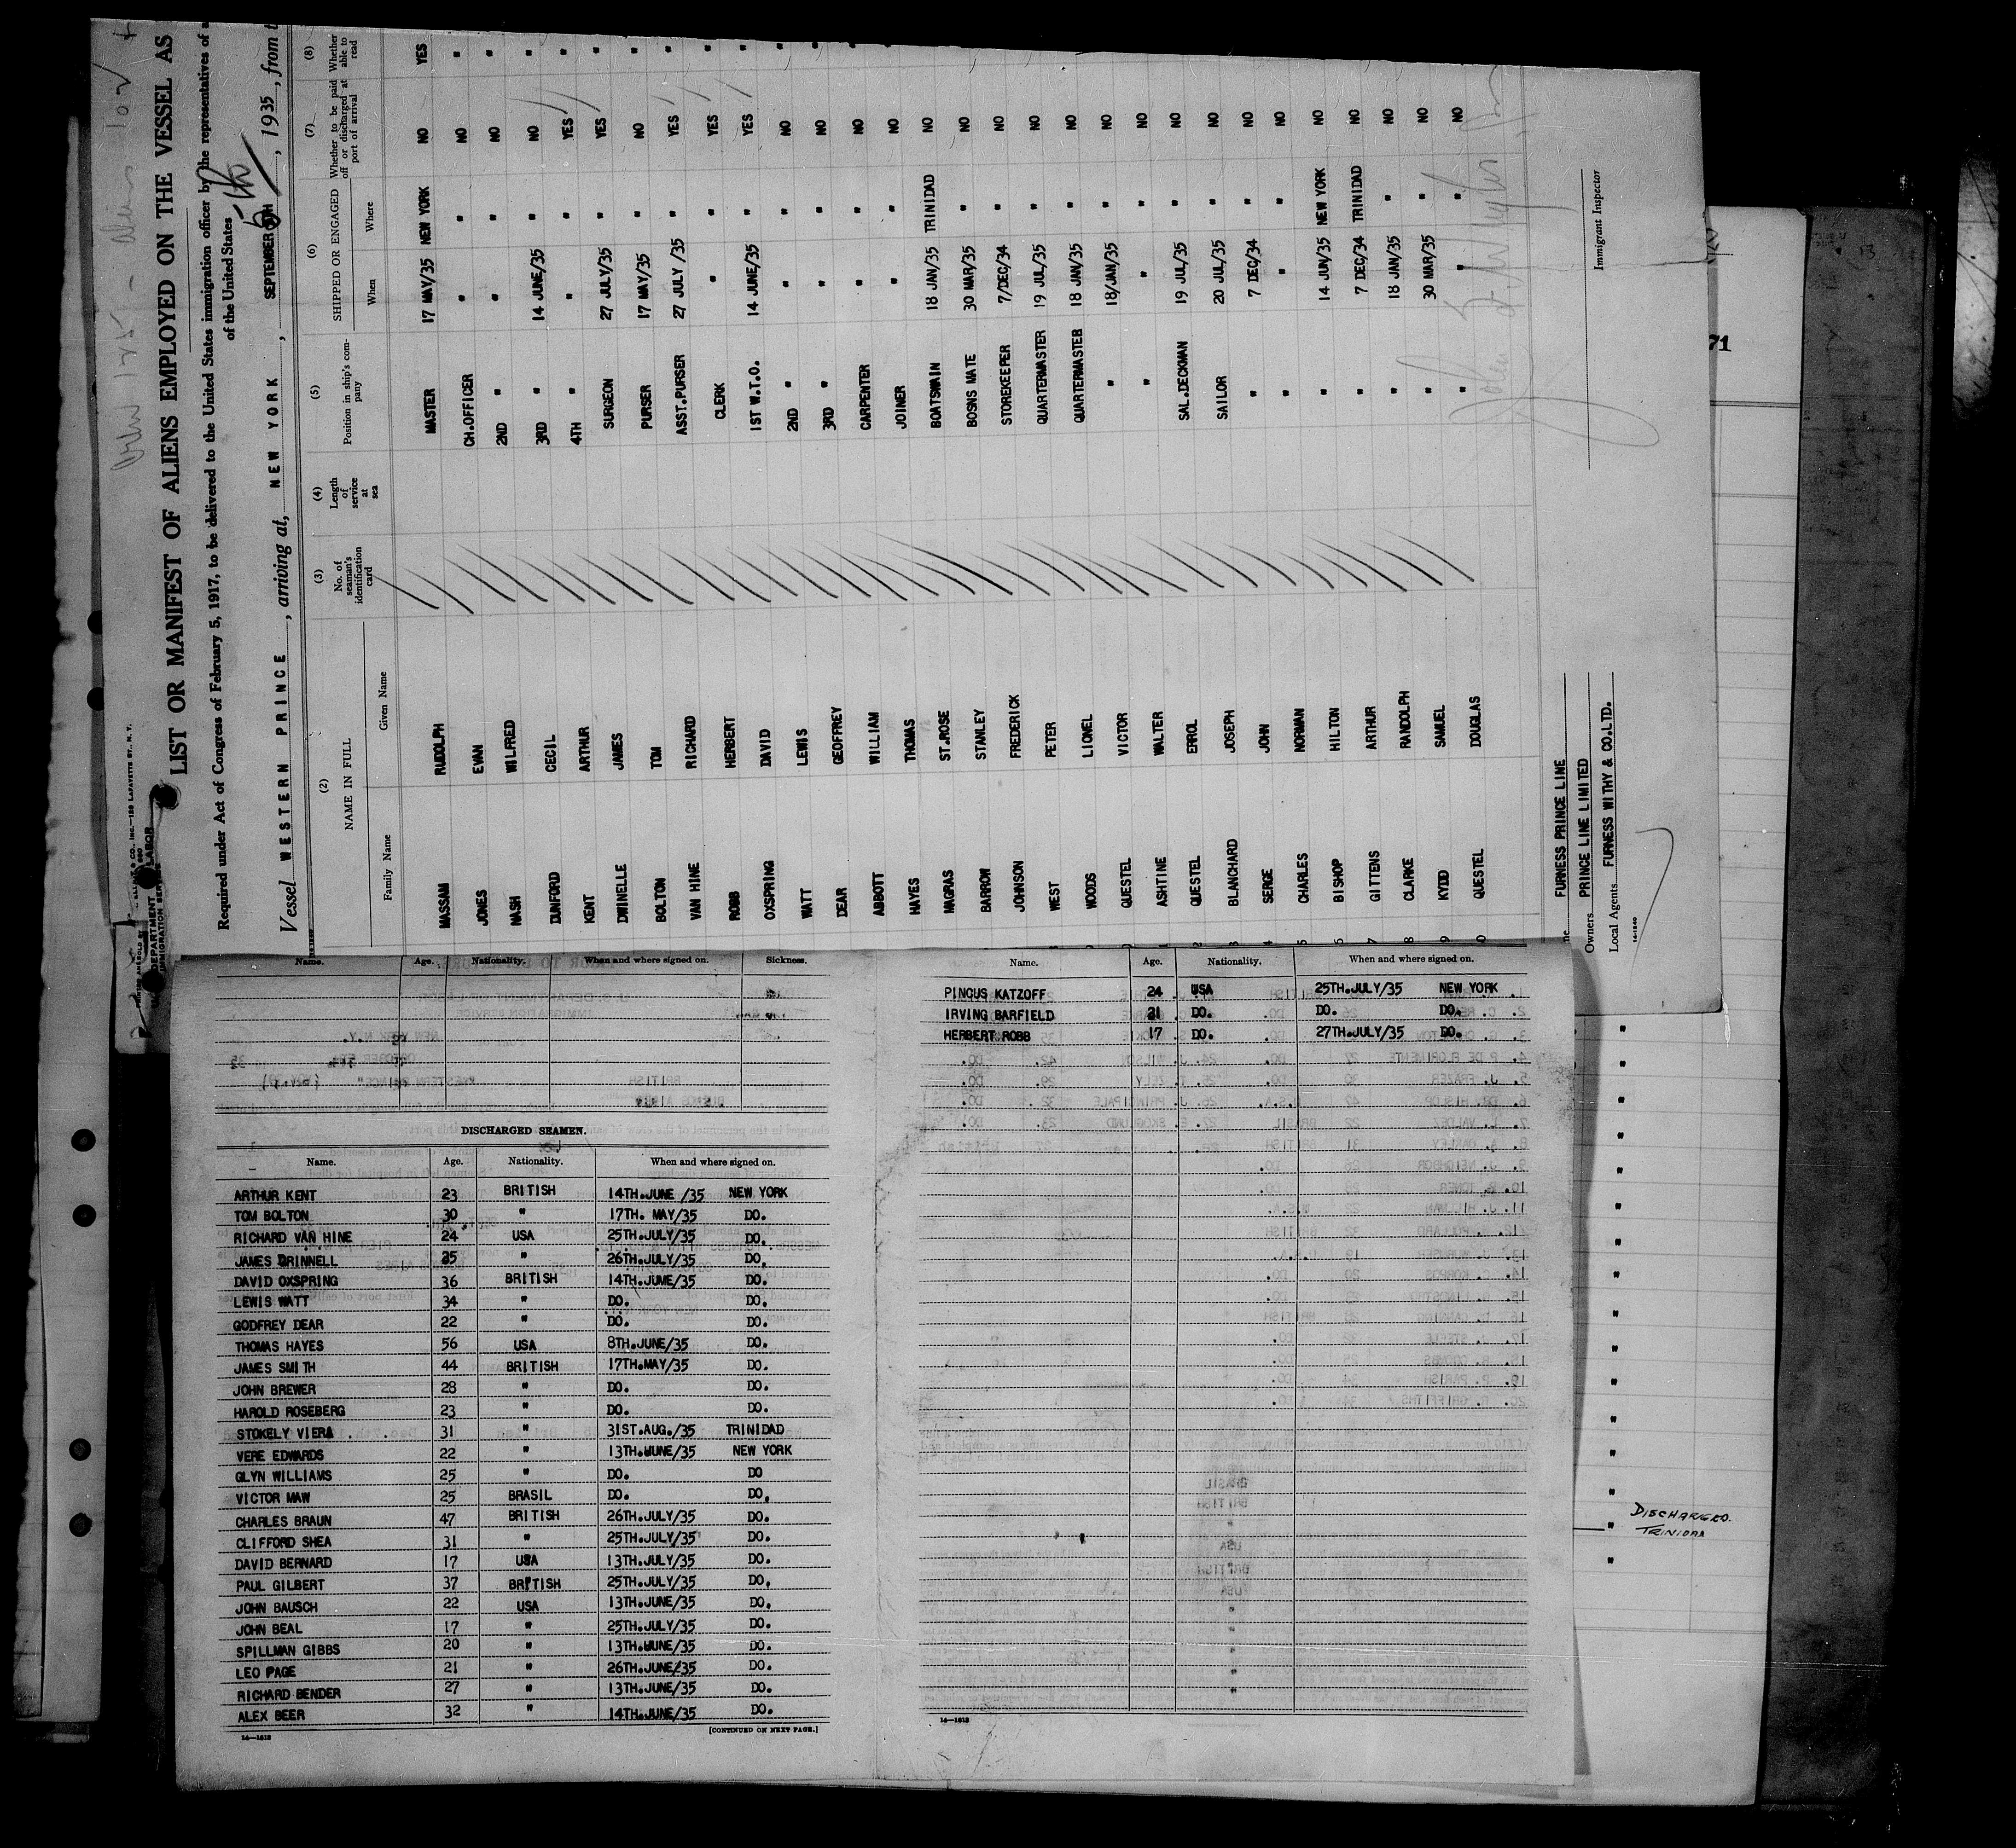 LIST OR MANIFEST OF ALIENS EMPLOYED ON THE VESSEL AS
Required under Act of Congress of February 5, 1917, to be delivered to the United States immigration officer by the representatives of a
of the United States
Vessel WESTERN PRINCE, arriving at, NEW YORK, SEPTEMBER 5th, 1935, from t
(2) (3) (4) (5) (6) (7) (8)
NAME IN FULL No. of seaman's identification card Length of service at sea Position in ship's company SHIPPED OR ENGAGED Whether to be paid off or discharged at port of arrival Whether able to read
Family Name Given Name When Where
MASSAM RUDOLPH MASTER 17 MAY/35 NEW YORK NO YES
JONES EVAN CH.OFFICER " " NO "
NASH WILFRED 2ND " " " NO "
DUNFORD CECIL 3RD " 14 JUNE/35 " NO "
KENT ARTHUR 4TH " " " YES "
DWINELLE JAMES SURGEON 27 JULY/35 " YES "
BOLTON TOM PURSER 17 MAY/35 " NO "
VAN HINE RICHARD ASST.PURSER 27 JULY /35 " YES "
ROBB HERBERT CLERK " " YES "
OXSPRING DAVID 1ST W.T.O. 14 JUNE/35 " YES "
WATT LEWIS 2ND " " " NO "
DEAR GEOFFREY 3RD " " " NO "
ABBOTT WILLIAM CARPENTER " " NO "
HAYES THOMAS JOINER " " NO "
MAGRAS ST.ROSE BOATSWAIN 18 JAN/35 TRINIDAD NO
BARROW STANLEY BOSNS MATE 30 MAR/35 " NO
JOHNSON FREDERICK STOREKEEPER 7/DEC/34 " NO
WEST PETER QUARTERMASTER 19 JUL/35 " NO
WOODS LIONEL QUARTERMASTEB 18 JAN/35 " NO
QUESTEL VICTOR " 18/JAN/35 " NO
ASHTINE WALTER " " " NO
QUESTEL ERROL SAL.DECKMAN 19 JUL/35 " NO
BLANCHARD JOSEPH SAILOR 20 JUL/35 " NO
SERGE JOHN " 7 DEC/34 " NO
CHARLES NORMAN " " " NO
BISHOP HILTON " 14 JUN/35 NEW YORK NO
GITTENS ARTHUR " 7 DEC/34 TRINIDAD NO
CLARKE RANDOLPH " 18 JAN/35 " NO
KYDD SAMUEL " 30 MAR/35 " NO
QUESTEL DOUGLAS " " " NO
FURNESS PRINCE LINE
Owners PRINCE LINE LIMITED
Local Agents FURNESS WITHY & CO.LTD.
Immigrant Inspector
71
Name. Age. Nationality. When and where signed on. Sickness.
DISCHARGED SEAMEN.
Name. Age. Nationality. When and where signed on.
ARTHUR KENT 23 BRITISH 14TH.JUNE /35 NEW YORK
TOM BOLTON 30 " 17TH. MAY/35 DO.
RICHARD VAN HINE 24 USA 25TH.JULY/35 DO.
JAMES DRINNELL 35 " 26TH.JULY/35 DO.
DAVID OXSPRING 36 BRITISH 14TH.JUME/35 DO.
LEWIS WATT 34 " DO. DO.
GODFREY DEAR 22 " DO. DO.
THOMAS HAYES 56 USA 8TH.JUNE/35 DO.
JAMES SMITH 44 BRITISH 17TH.MAY/35 DO.
JOHN BREWER 28 " DO. DO.
HAROLD ROSEBERG 23 " DO. DO.
STOKELY VIERA 31 " 31ST.AUG./35 TRINIDAD
VERE EDWARDS 22 " 13TH.JUNE/35 NEW YORK
GLYN WILLIAMS 25 " DO. DO
VICTOR MAW 25 BRASIL DO. DO.
CHARLES BRAUN 47 BRITISH 26TH.JULY/35 DO.
CLIFFORD SHEA 31 " 25TH.JULY/35 DO.
DAVID BERNARD 17 USA 13TH.JULY/35 DO.
PAUL GILBERT 37 BRITISH 25TH.JULY/35 DO.
JOHN BAUSCH 22 USA 13TH.JUNE/35 DO.
JOHN BEAL 17 " 25TH.JULY/35 DO.
SPILLMAN GIBBS 20 " 13TH.JUNE/35 DO.
LEO PAGE 21 " 26TH.JUNE/35 DO.
RICHARD BENDER 27 " 13TH.JUNE/35 DO.
ALEX BEER 32 " 14TH.JUNE/35 DO.
14—1612
[CONTINUED ON NEXT PAGE.]
Name. Age. Nationality. When and where signed on.
PINCUS KATZOFF 24 USA 25TH.JULY/35 NEW YORK
IRVING BARFIELD 21 DO. DO. DO.
HERBERT ROBB 17 DO. 27TH.JULY/35 DO.
14—1612
DISCHARGED.
TRINIDAD